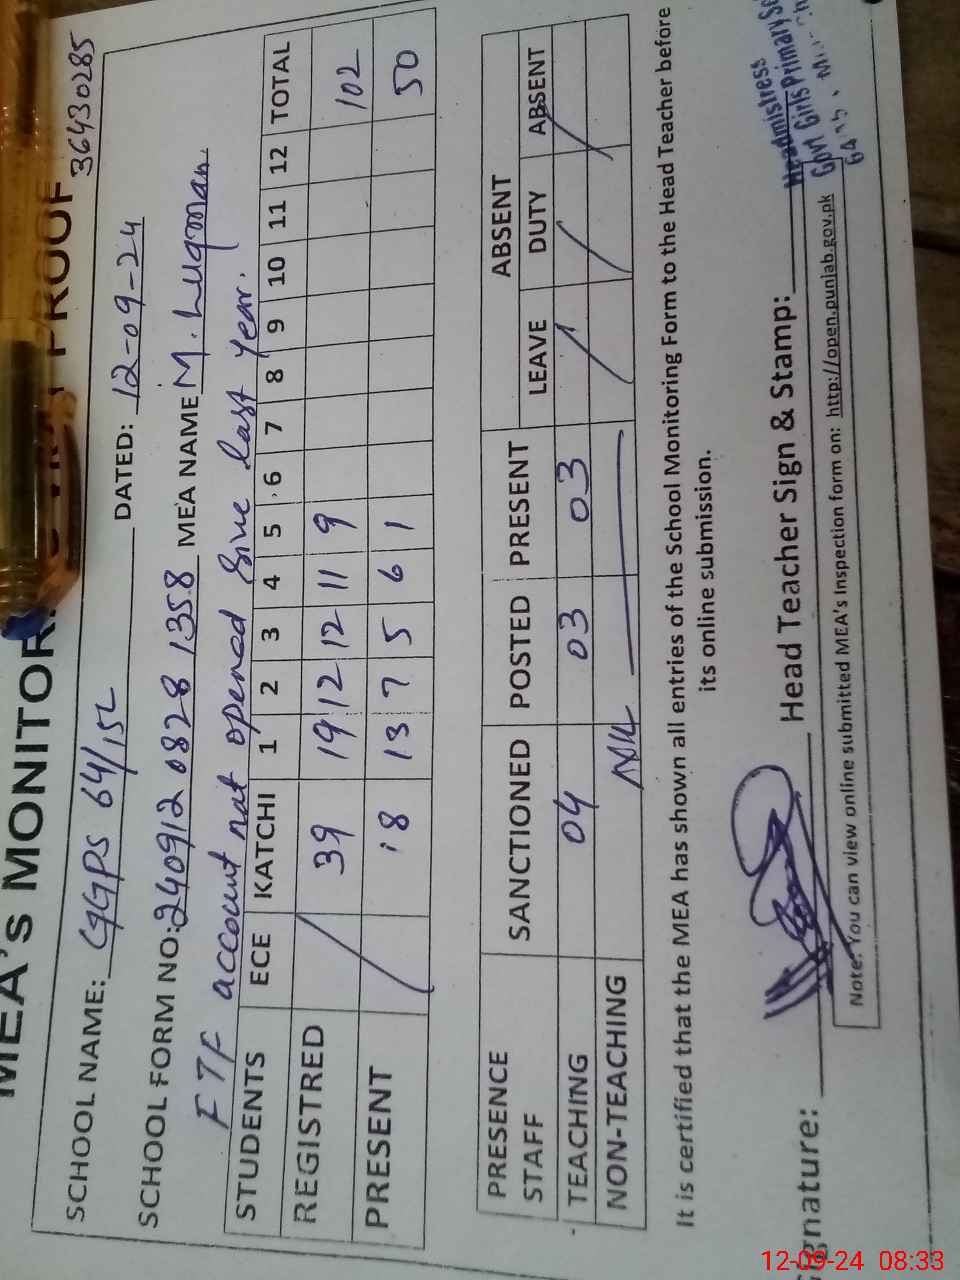 MEA's MONITOR PROOF
36430285
SCHOOL NAME: GGPS 64/15L DATED: 12-09-24
SCHOOL FORM NO: 240912 0828 1358 MEA NAME M. Luqman
FTF account not opened Sine last year.
STUDENTS ECE KATCHI 1 2 3 4 5 6 7 8 9 10 11 12 TOTAL
REGISTRED / 39 19 12 12 11 9 102
PRESENT 18 13 7 5 6 1 50
PRESENCE STAFF SANCTIONED POSTED PRESENT ABSENT
LEAVE DUTY ABSENT
TEACHING 04 03 03 / / /
NON-TEACHING Nil
It is certified that the MEA has shown all entries of the School Monitoring Form to the Head Teacher before
its online submission.
Signature: Head Teacher Sign & Stamp:
Headmistress
Govt Girls Primary
64
Note: You can view online submitted MEA's Inspection form on: http://open.punjab.gov.pk
12-09-24 08:33